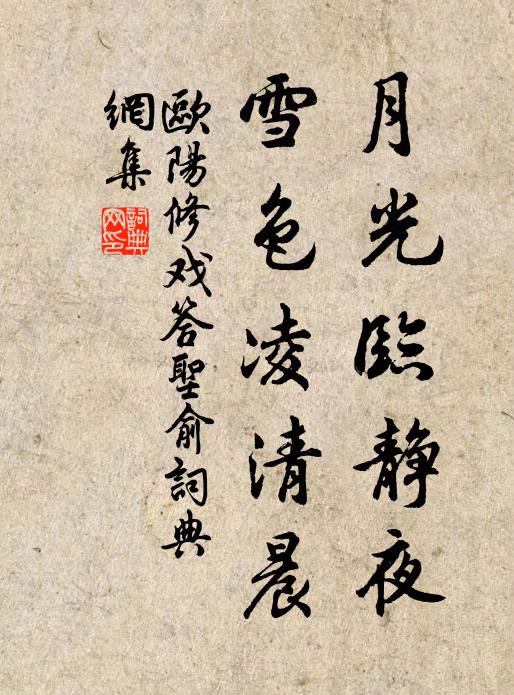 月光臨静夜
雪色凌清晨
歐陽修戏答聖俞詞典
網集
詞典
网印